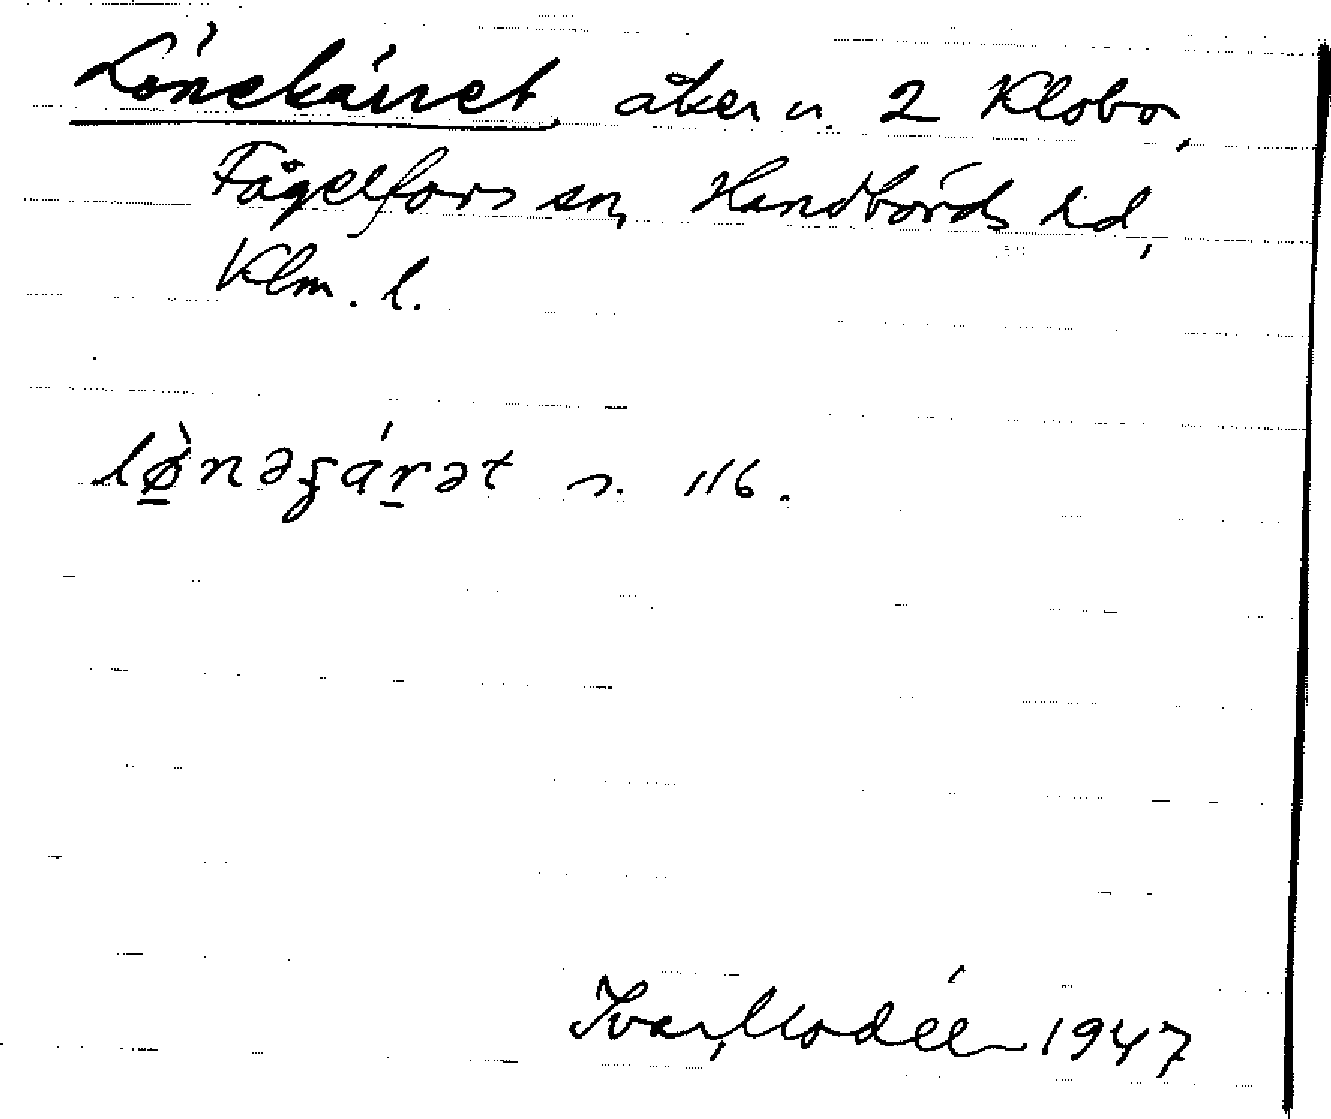 Lönekärret, åker u. 2 Klobo,
Fågelfors sn, Handbörds hd,
Klm. l.
lø̠̀nəʒár̠ət s. 116.
Ivar Modéer 1947